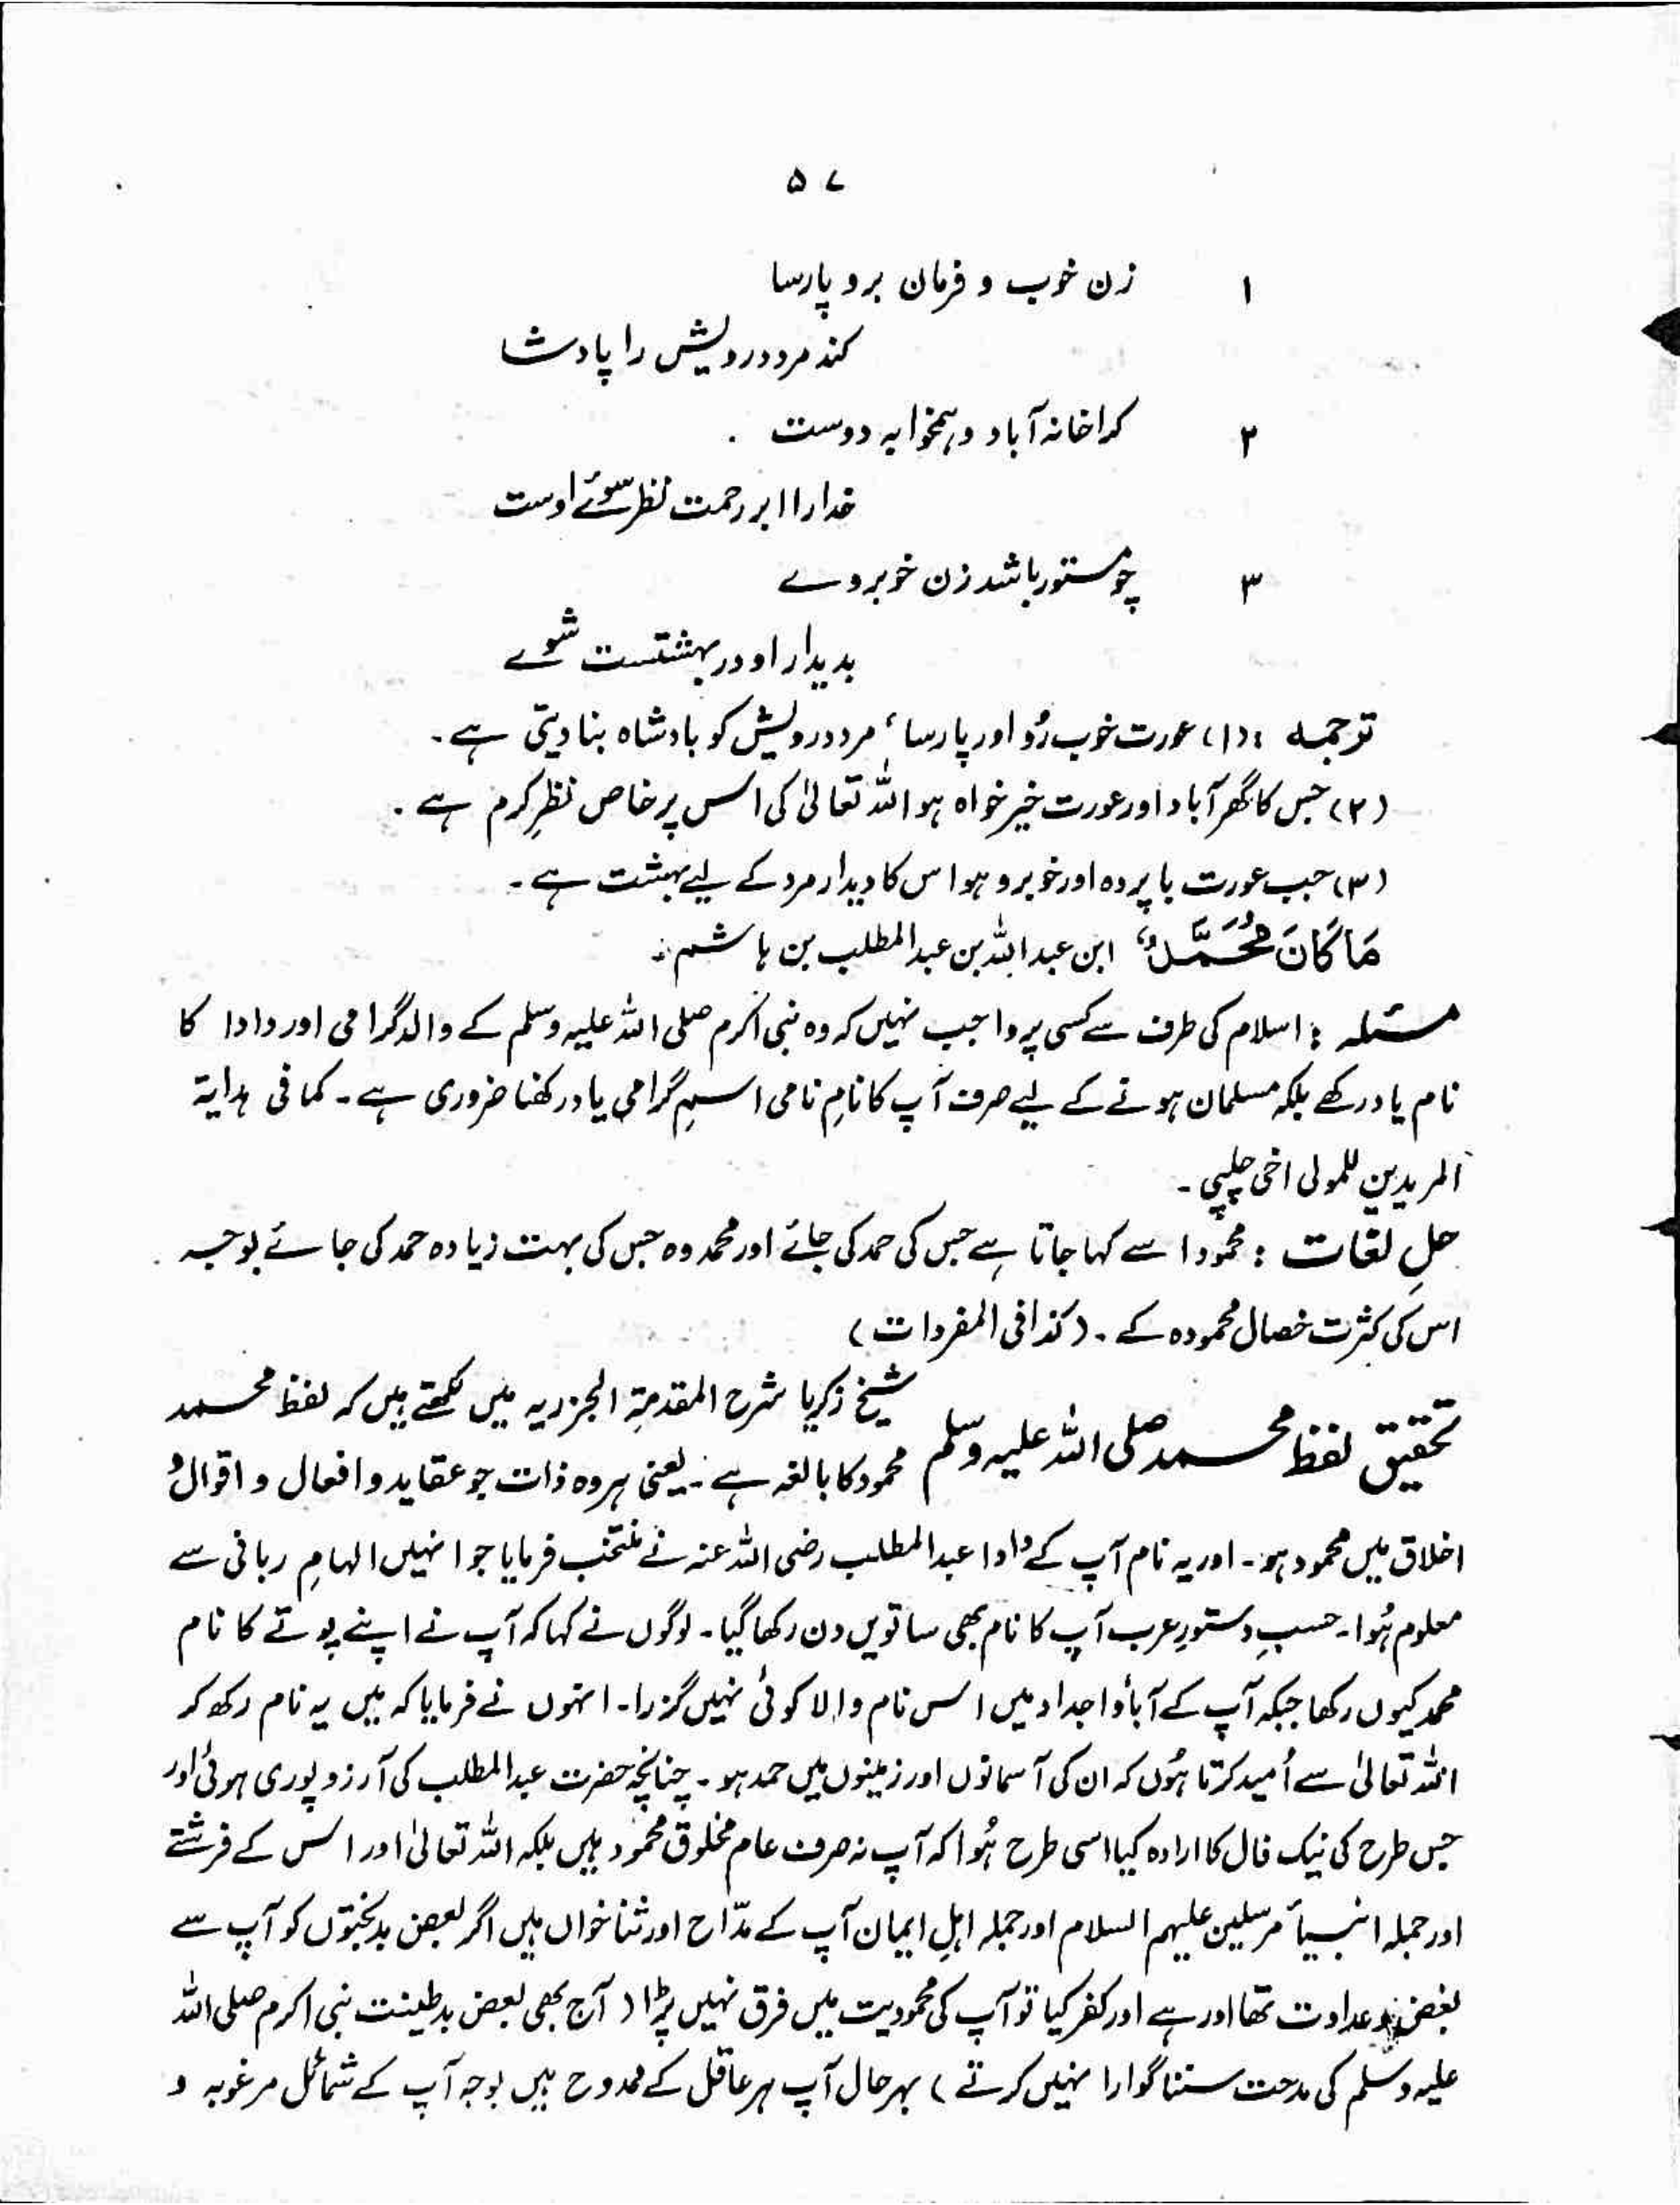 ۵۷
۱ زن خوب و فرمان بر و پارسا
کند مرد درویش را پادشا
۲ کرا خانہ آباد و ہمخوابہ دوست
خدا را ابر رحمت نظر سوئے اوست
۳ چو مستور باشد زن خوبروے
بدیدار او در بہشتست شوے
ترجمہ : (۱) عورت خوب رُو اور پارسا ، مرد درویش کو بادشاہ بنا دیتی ہے۔
(۲) جس کا گھر آباد اور عورت خیر خواہ ہو اللہ تعالیٰ کی اس پر خاص نظرِ کرم ہے۔
(۳) جب عورت با پردہ اور خوبرو ہو اس کا دیدار مرد کے لیے بہشت ہے۔
مَا کَانَ مُحَمَّدٌ ، ابن عبداللہ بن عبدالمطلب بن ہاشم ۔
مسئلہ : اسلام کی طرف سے کسی پر واجب نہیں کہ وہ نبی اکرم صلی اللہ علیہ وسلم کے والد گرامی اور دادا کا
نام یاد رکھے بلکہ مسلمان ہونے کے لیے صرف آپ کا نامِ نامی اسمِ گرامی یاد رکھنا ضروری ہے۔ کما فی ہدایۃ
المریدین للمولی اخی چلپی ۔
حلِ لغات : محمود اسے کہا جاتا ہے جس کی حمد کی جائے اور محمد وہ جس کی بہت زیادہ حمد کی جائے بوجہ
اس کی کثرت خصال محمودہ کے ۔ (کذا فی المفردات)
تحقیق لفظ محمد صلی اللہ علیہ وسلم شیخ زکریا شرح المقدمۃ الجزریہ میں لکھتے ہیں کہ لفظ محمد
محمود کا بالغہ ہے ۔ یعنی ہر وہ ذات جو عقاید و افعال و اقوال و
اخلاق میں محمود ہو ۔ اور یہ نام آپ کے دادا عبدالمطلب رضی اللہ عنہ نے منتخب فرمایا جو انہیں الہامِ ربانی سے
معلوم ہُوا ۔ حسبِ دستورِ عرب آپ کا نام بھی ساتویں دن رکھا گیا ۔ لوگوں نے کہا کہ آپ نے اپنے پوتے کا نام
محمد کیوں رکھا جبکہ آپ کے آبأ و اجداد میں اس نام والا کوئی نہیں گزرا ۔ انہوں نے فرمایا کہ میں یہ نام رکھ کر
اللہ تعالیٰ سے اُمید کرتا ہُوں کہ ان کی آسمانوں اور زمینوں میں حمد ہو ۔ چنانچہ حضرت عبدالمطلب کی آرزو پوری ہوئی اور
جس طرح کی نیک فال کا ارادہ کیا اسی طرح ہُوا کہ آپ نہ صرف عام مخلوق محمود ہیں بلکہ اللہ تعالیٰ اور اس کے فرشتے
اور جملہ انبیأ مرسلین علیہم السلام اور جملہ اہلِ ایمان آپ کے مدّاح اور ثنا خواں ہیں اگر بعض بدبختوں کو آپ سے
بغض و عداوت تھا اور ہے اور کفر کیا تو آپ کی محمودیت میں فرق نہیں پڑا ( آج بھی بعض بد طینت نبی اکرم صلی اللہ
علیہ وسلم کی مدحت سننا گوارا نہیں کرتے ) بہرحال آپ ہر عاقل کے ممدوح ہیں بوجہ آپ کے شمائل مرغوبہ و